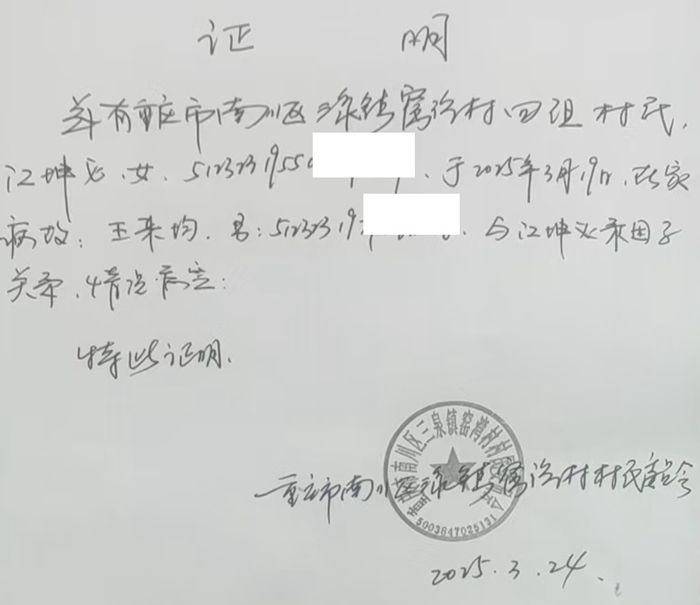 证 明
兹有重庆市南川区三泉镇窑湾村四组村民,
江坤必,女,512323195501,于2025年3月19日,在家
病故;王来均,男:51232319,与江坤必系母子
关系,情况属实:
特此证明.
重庆市南川区三泉镇窑湾村村民委员会
5003847025131
重庆市南川区三泉镇窑湾村村民委员会
2025.3.24.